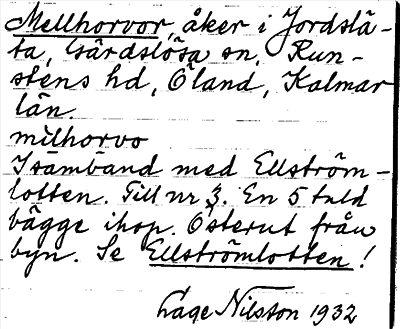 Mellhorvor, åker i Jordslä-
ta, Gärdslösa sn, Run-
stens hd, Öland, Kalmar
län.
milhorvo
I samband med Ellström-
lotten. Till nr 3. En 5 tuld
bägge ihop. Österut från
byn. Se Ellströmlotten!
Låge Nilsson 1932